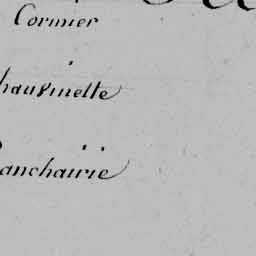 Cormier
hausinette
anchairie